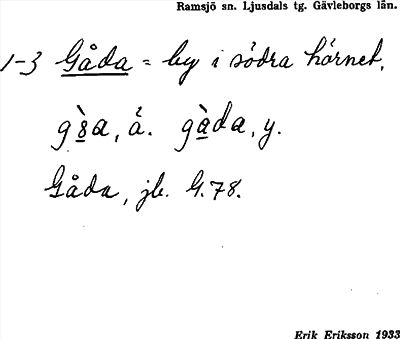 Ramsjö sn. Ljusdals tg. Gävleborgs län.
1-3 Gåda = by i södra hörnet.
gàda, y.
Gåda, jb. G. 78.
Erik Eriksson 1933